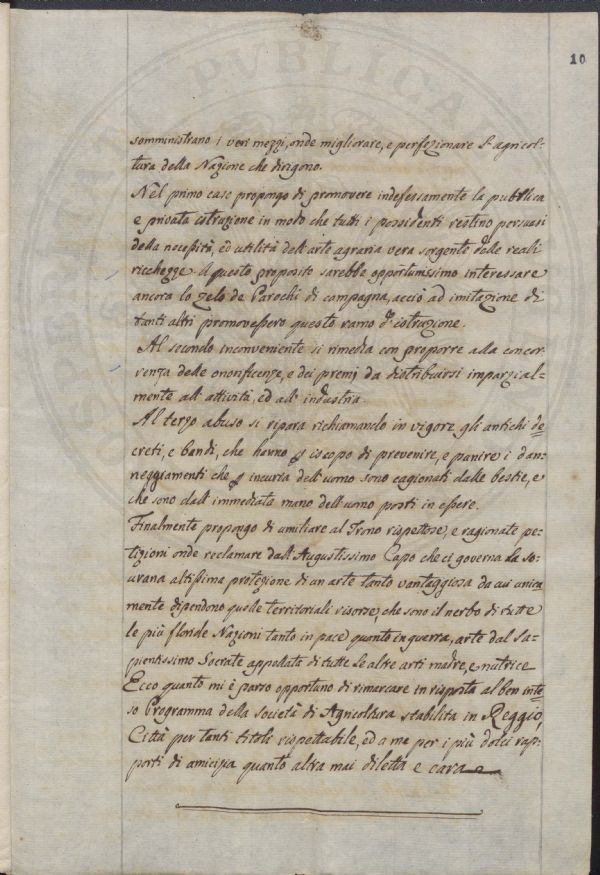 10
somministrano i veri mezzi, onde migliorare, e perfezionare l'agricol-
tura della Nazione che dirigono.
Nel primo caso propongo di promovere indefessamente la pubblica
e privata istruzione in modo che tutti i possidenti restino persuasi
della necessità, ed utilità dell'arte agraria vera sorgente delle reali
ricchezze. A questo proposito sarebbe opportunissimo interessare
ancora lo zelo de Parochi di campagna, acciò ad imitazione di
tanti altri promovessero questo ramo d'istruzione.
Al secondo inconveniente si rimedia con proporre alla concor-
renza delle onorificenze, e dei premj da distribuirsi imparzial-
mente all'attività, ed all'industria.
Al terzo abuso si ripara richiamando in vigore gli antichi de-
creti, e bandi, che hanno p iscopo di prevenire, e punire i dan-
neggiamenti che p incuria dell'uomo sono cagionati dalle bestie, e
che sono dall'immediata mano dell'uomo posti in essere.
Finalmente propongo di umiliare al Trono rispettose, e ragionate pe-
tizioni onde reclamare dall'Augustissimo Capo che ci governa la so-
vrana altissima protezione di un arte tanto vantaggiosa da cui unica-
mente dipendono quelle territoriali risorse, che sono il nerbo di tutte
le più floride Nazioni tanto in pace quanto in guerra, arte dal sa-
pientissimo Socrate appellata di tutte le altre arti madre, e nutrice
Ecco quanto mi è parso opportuno di rimarcare in risposta al ben inte-
so Programma della Società di Agricoltura stabilita in Reggio,
Città per tanti titoli rispettabile, ed a me per i più dolci rap-
porti di amicizia quanto altra mai diletta e cara
PVBLICA